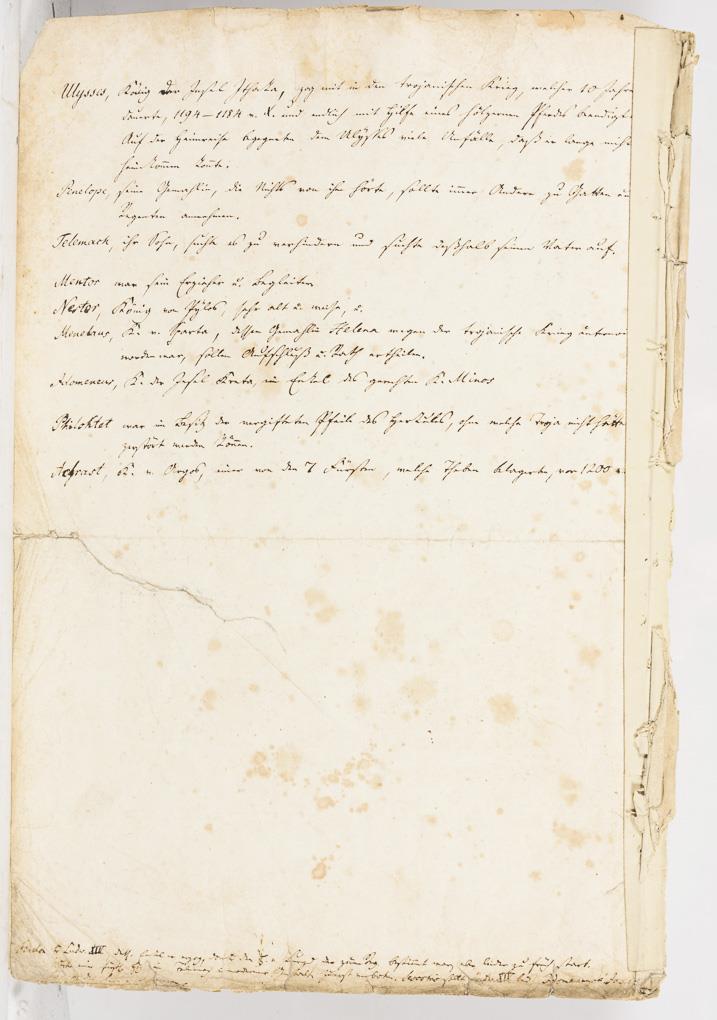 Ulysses, König der Insel Ithaka, zog mit in den trojanischen Krieg, welcher 10 Jahre
dauerte, 1194–1184 v. X. und endlich mit Hilfe eines hölzernen Pferdes beendigt
Auf der Heimreise begegneten dem Ulysses viele Unfälle, daß er lange nicht
heimkommen konnte.
Penelope, seine Gemahlin, die Nichts von ihm hörte, sollte einen Andern zu Gatten u
Regenten annehmen.
Telemach, ihr Sohn, suchte es zu verhindern und suchte deßhalb seinen Vater auf.
Mentor war sein Erzieher u. Begleiter.
Nestor, König von Pylos, sehr alt u. weise, u.
Menelaus, K. v. Sparta, dessen Gemahlin Helena wegen der trojanische Krieg
worden war, sollen Aufschluß u. Rath ertheilen.
Idomeneus, K. der Insel Kreta, ein Enkel des gerechten K. Minos
Philoktet war im Besitz der vergifteten Pfeile des Herkules, ohne welche Troja nicht hätte
zerstört werden können.
Adrast, K. v. Argos, einer von den 7 Fürsten, welche Theben belagerten, vor 1200 v.
XIV
XIV